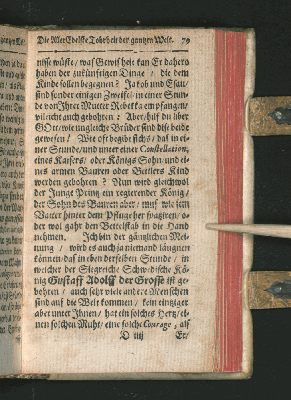 Die Aller Edelste Tohrheit der gantzen Welt. 79
nisse wüste/ was Gewisheit kan Er daher
haben der zukünftigen Dinge/ die dem
Kinde sollen begegnen? Jakob und Esau/
sind sonder einigen Zweifel in einer Stun-
de von Jhrer Mutter Rebekka empfangen/
vieleicht auch gebohren: Aber/ hilf du über
GOtt wie ungleiche Brüder sind dise beide
gewesen! Wie oft begibt sichs/ daß in ei-
ner Stunde/ und unter einer Constellation,
eines Kaisers/ oder Königs Sohn/ und ei-
nes armen Bauren oder Bettlers Kind
werden gebohren? Nun wird gleichwol
der Junge Printz ein regierender König/
der Sohn des Bauren aber/ muß wie sein
Vatter hinter dem Pfluge her spatziren/ o-
der wol gahr den Bettelstab in die Hand
nehmen. Jch bin der gäntzlichen Mei-
nung/ wird es auch ja niemand läugnen
können/ daß in eben derselben Stunde/ in
welcher der Siegreiche Schwedische Kö-
nig Gustaff Adolff der Grosse ist ge-
bohren/ auch sehr viele andere Menschen
sind auf die Welt kommen/ kein eintziger
aber unter Jhnen/ hat ein solches Hertz/ ei-
nen solchen Muht/ eine solche Courage, als
D iiij Er/